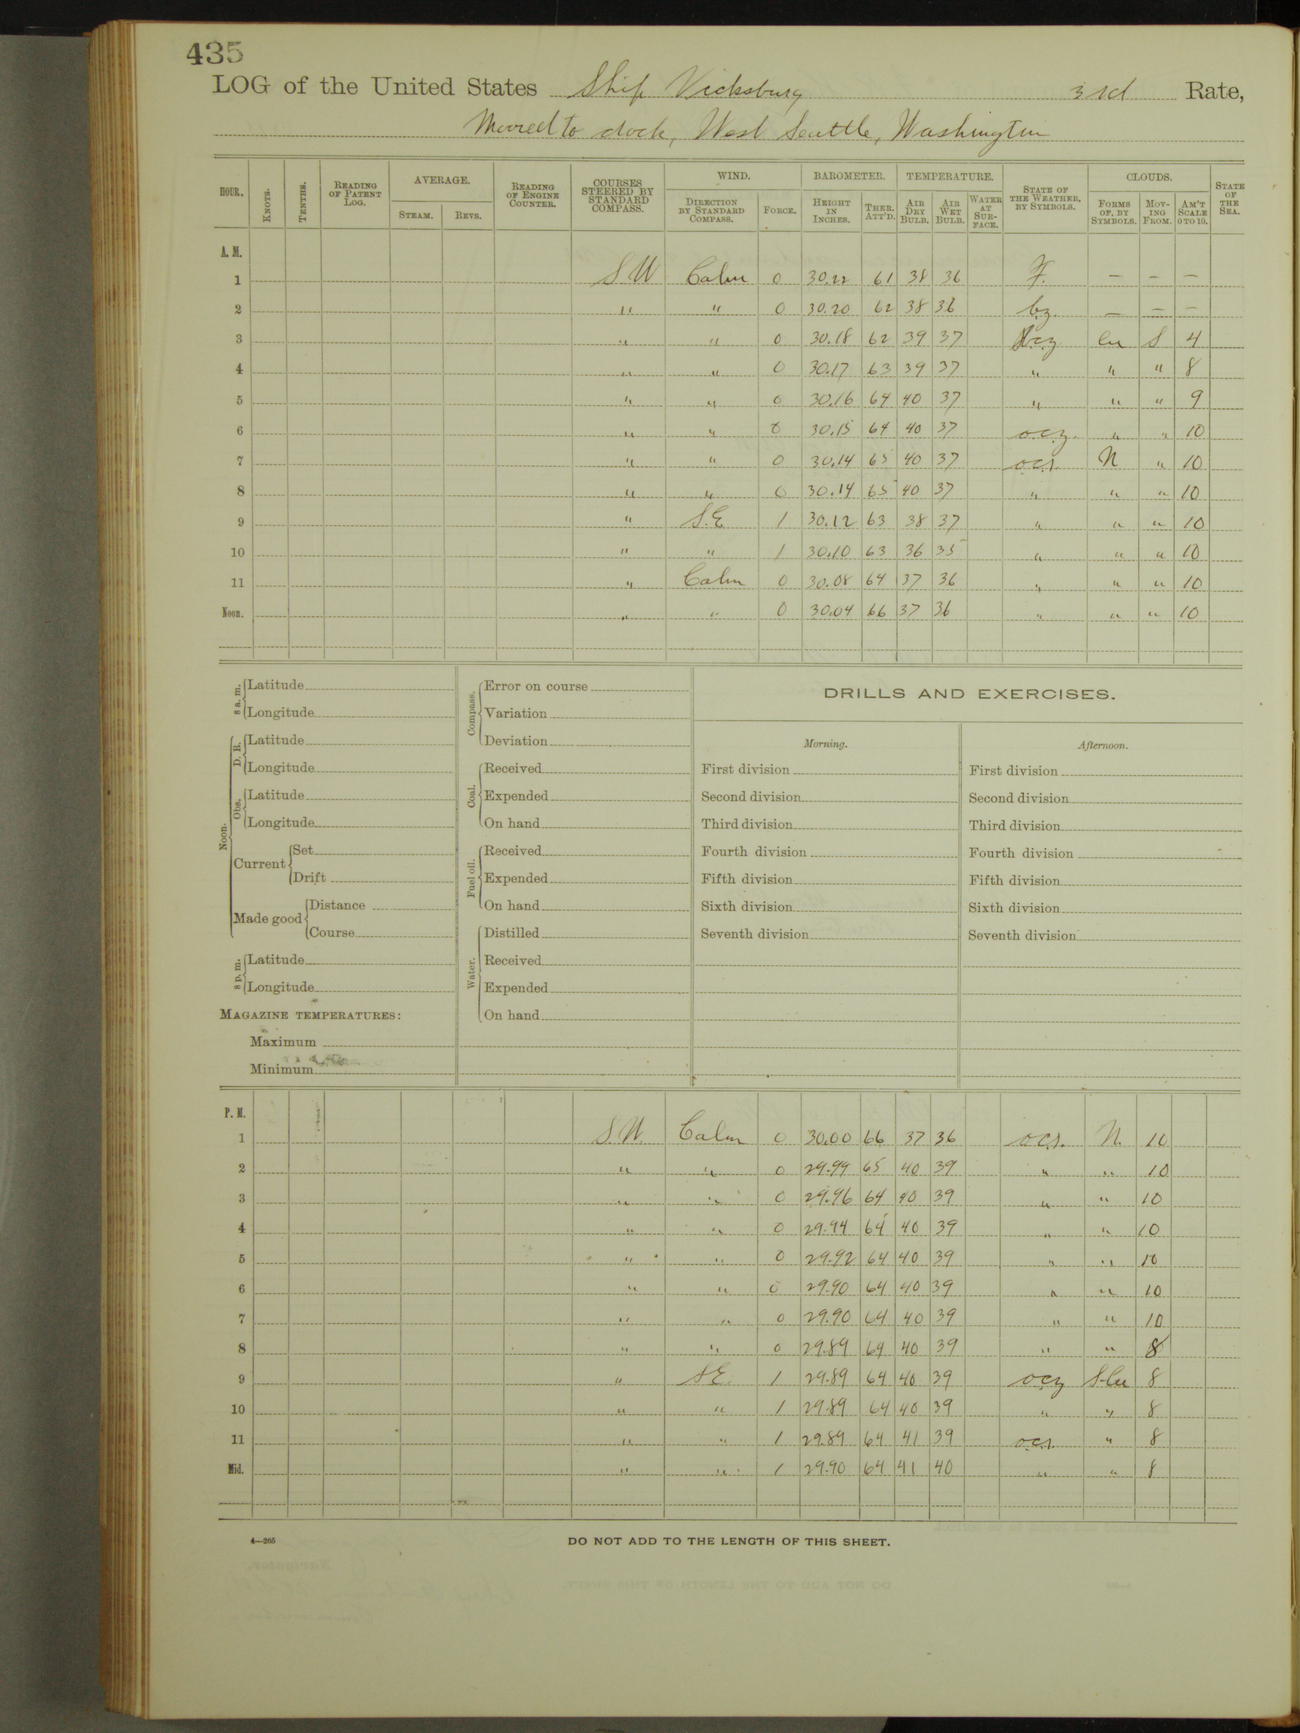 435
LOG of the United States Ship Vicksburg 3rd Rate,
Moored to dock, West Seattle, Washington
HOUR. KNOTS. TENTHS. READING OF PATENT LOG. AVERAGE. STEAM. REVS. READING OF ENGINE COUNTER. COURSES STEERED BY STANDARD COMPASS. WIND. DIRECTION BY STANDARD COMPASS. FORCE. BAROMETER. HEIGHT IN INCHES. THER. ATT'D. TEMPERATURE. AIR DRY BULB. AIR WET BULB. WATER AT SURFACE. STATE OF THE WEATHER, BY SYMBOLS. CLOUDS. FORMS OF, BY SYMBOLS. MOVING FROM. AM'T SCALE 0 TO 10. STATE OF THE SEA.
A. M.
1 S.W Calm 0 30.22 61 38 36 F. — — —
2 " " 0 30.20 62 38 36 bz. — — —
3 " " 0 30.18 62 39 37 bcz cu S 4
4 " " 0 30.17 63 39 37 " " " 8
5 " " 0 30.16 64 40 37 " " " 9
6 " " 0 30.15 64 40 37 o.c.z. " " 10
7 " " 0 30.14 65 40 37 o.c.r. N " 10
8 " " 0 30.14 65 40 37 " " " 10
9 " S.E 1 30.12 63 38 37 " " " 10
10 " " 1 30.10 63 36 35 " " " 10
11 " Calm 0 30.08 64 37 36 " " " 10
Noon. " " 0 30.04 66 37 36 " " " 10
8 a. m. Latitude
Longitude
Noon. D. R. Latitude
Longitude
Obs. Latitude
Longitude
Current Set
Drift
Made good Distance
Course
8 p. m. Latitude
Longitude
MAGAZINE TEMPERATURES:
Maximum
Minimum
Compass. Error on course
Variation
Deviation
Coal. Received
Expended
On hand
Fuel oil. Received
Expended
On hand
Water. Distilled
Received
Expended
On hand
DRILLS AND EXERCISES.
Morning.
First division
Second division
Third division
Fourth division
Fifth division
Sixth division
Seventh division
Afternoon.
First division
Second division
Third division
Fourth division
Fifth division
Sixth division
Seventh division
P. M.
1 S.W. Calm 0 30.00 66 37 36 o.c.r. N. 10
2 " " 0 29.99 65 40 39 " " 10
3 " " 0 29.96 64 40 39 " " 10
4 " " 0 29.94 64 40 39 " " 10
5 " " 0 29.92 64 40 39 " " 10
6 " " 0 29.90 64 40 39 " " 10
7 " " 0 29.90 64 40 39 " " 10
8 " " 0 29.89 64 40 39 " " 8
9 " S.E. 1 29.89 64 40 39 o.c.z S-Cu 8
10 " " 1 29.89 64 40 39 " " 8
11 " " 1 29.89 64 41 39 o.c.r. " 8
Mid. " " 1 29.90 64 41 40 " " 8
4—265
DO NOT ADD TO THE LENGTH OF THIS SHEET.